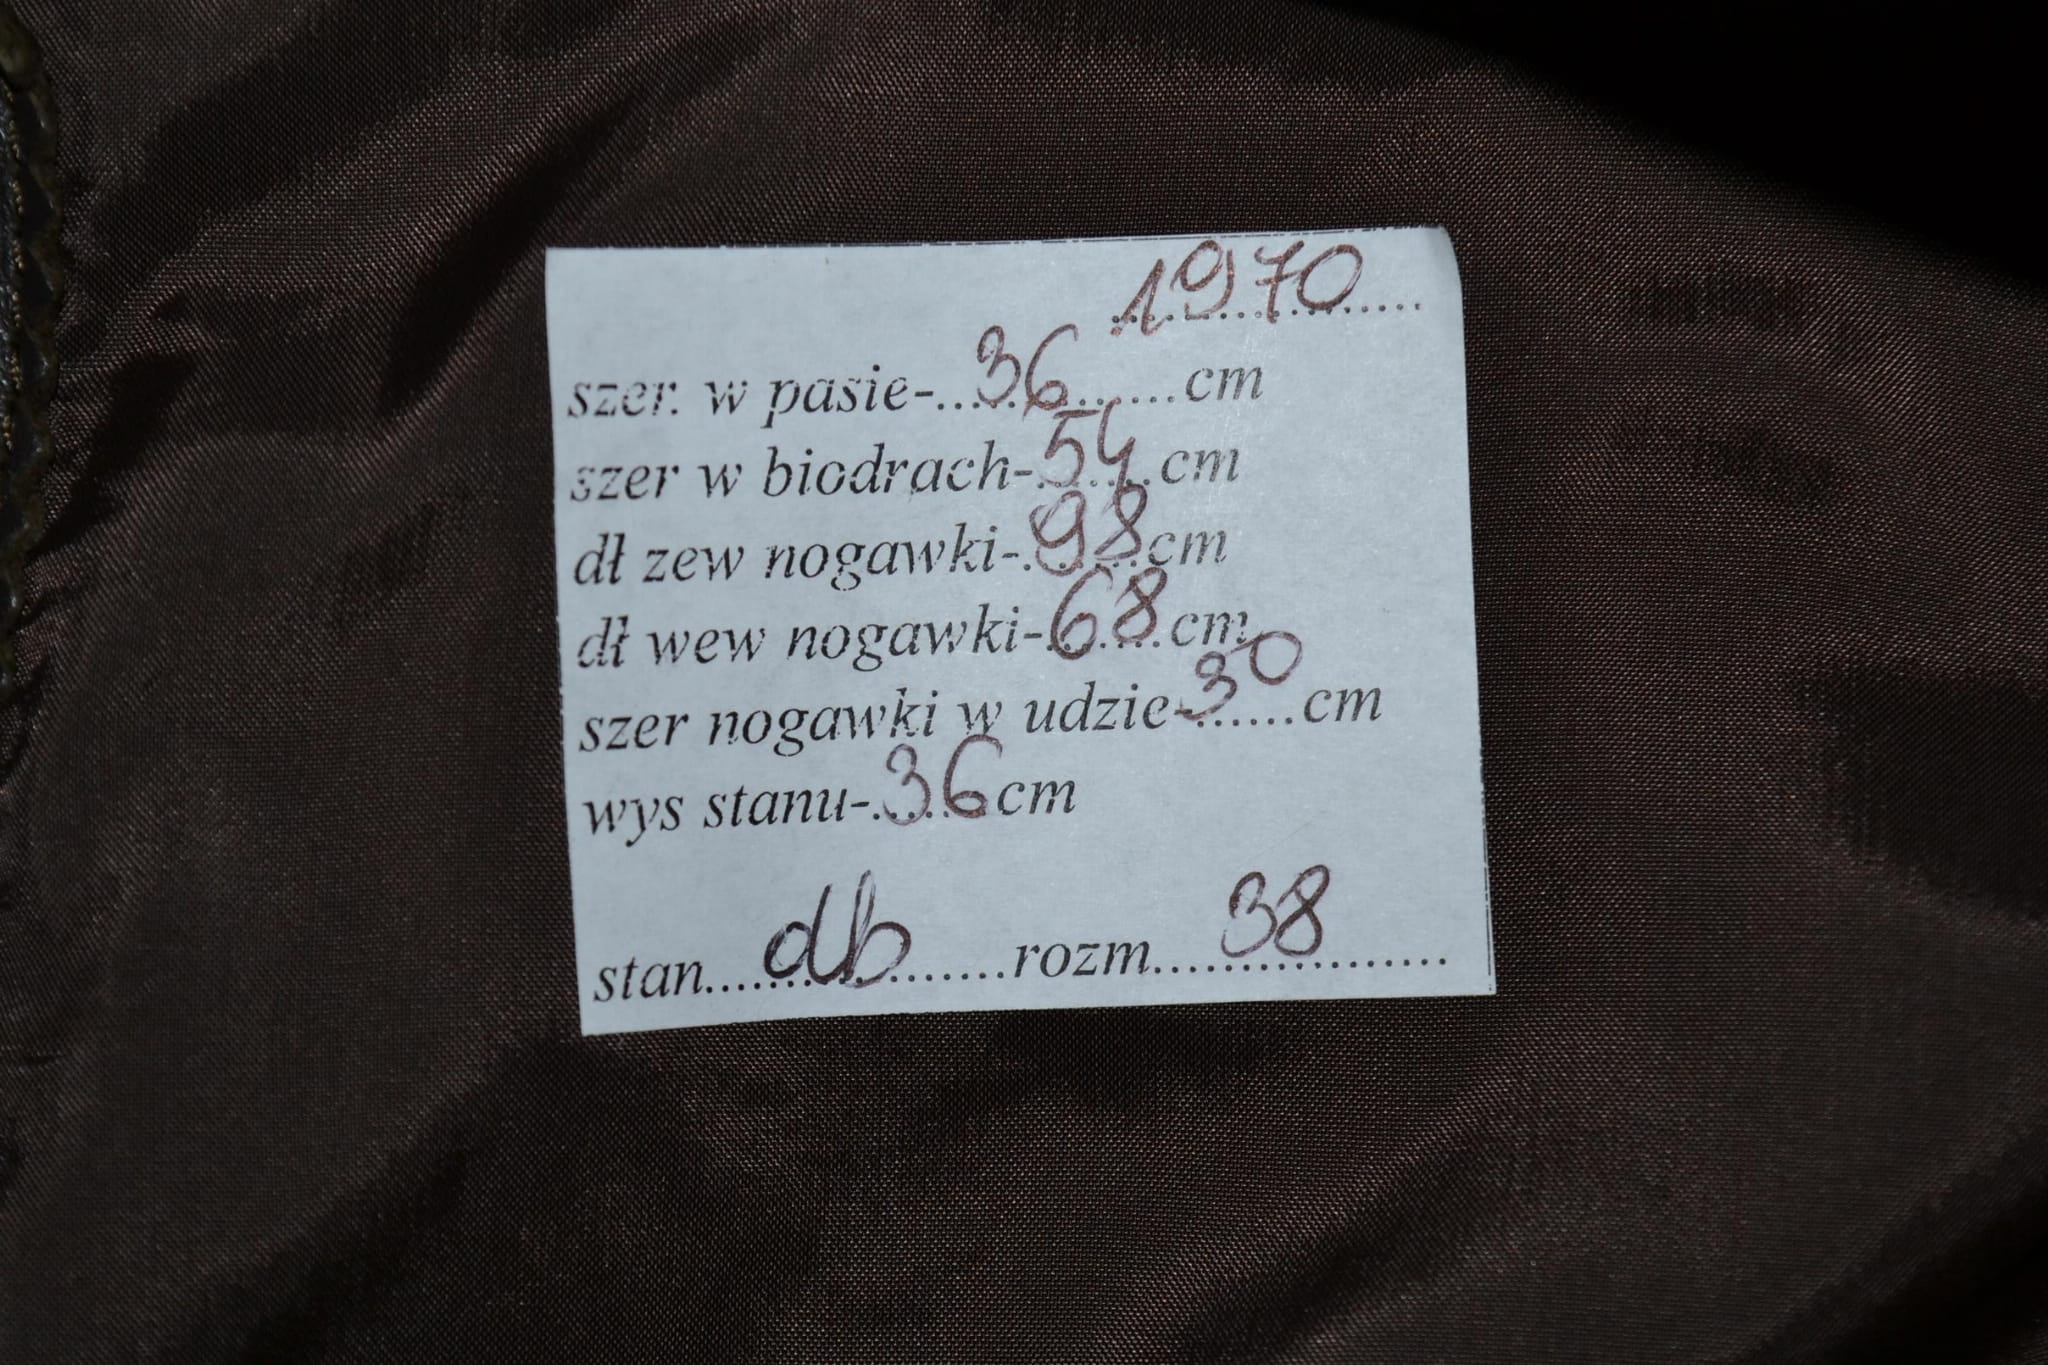 1970
szer. w pasie-...36...cm
szer w biodrach-54...cm
dł zew nogawki-98cm
dł wew nogawki-68cm
szer nogawki w udzie-30...cm
wys stanu-36cm
stan...db...rozm...38...